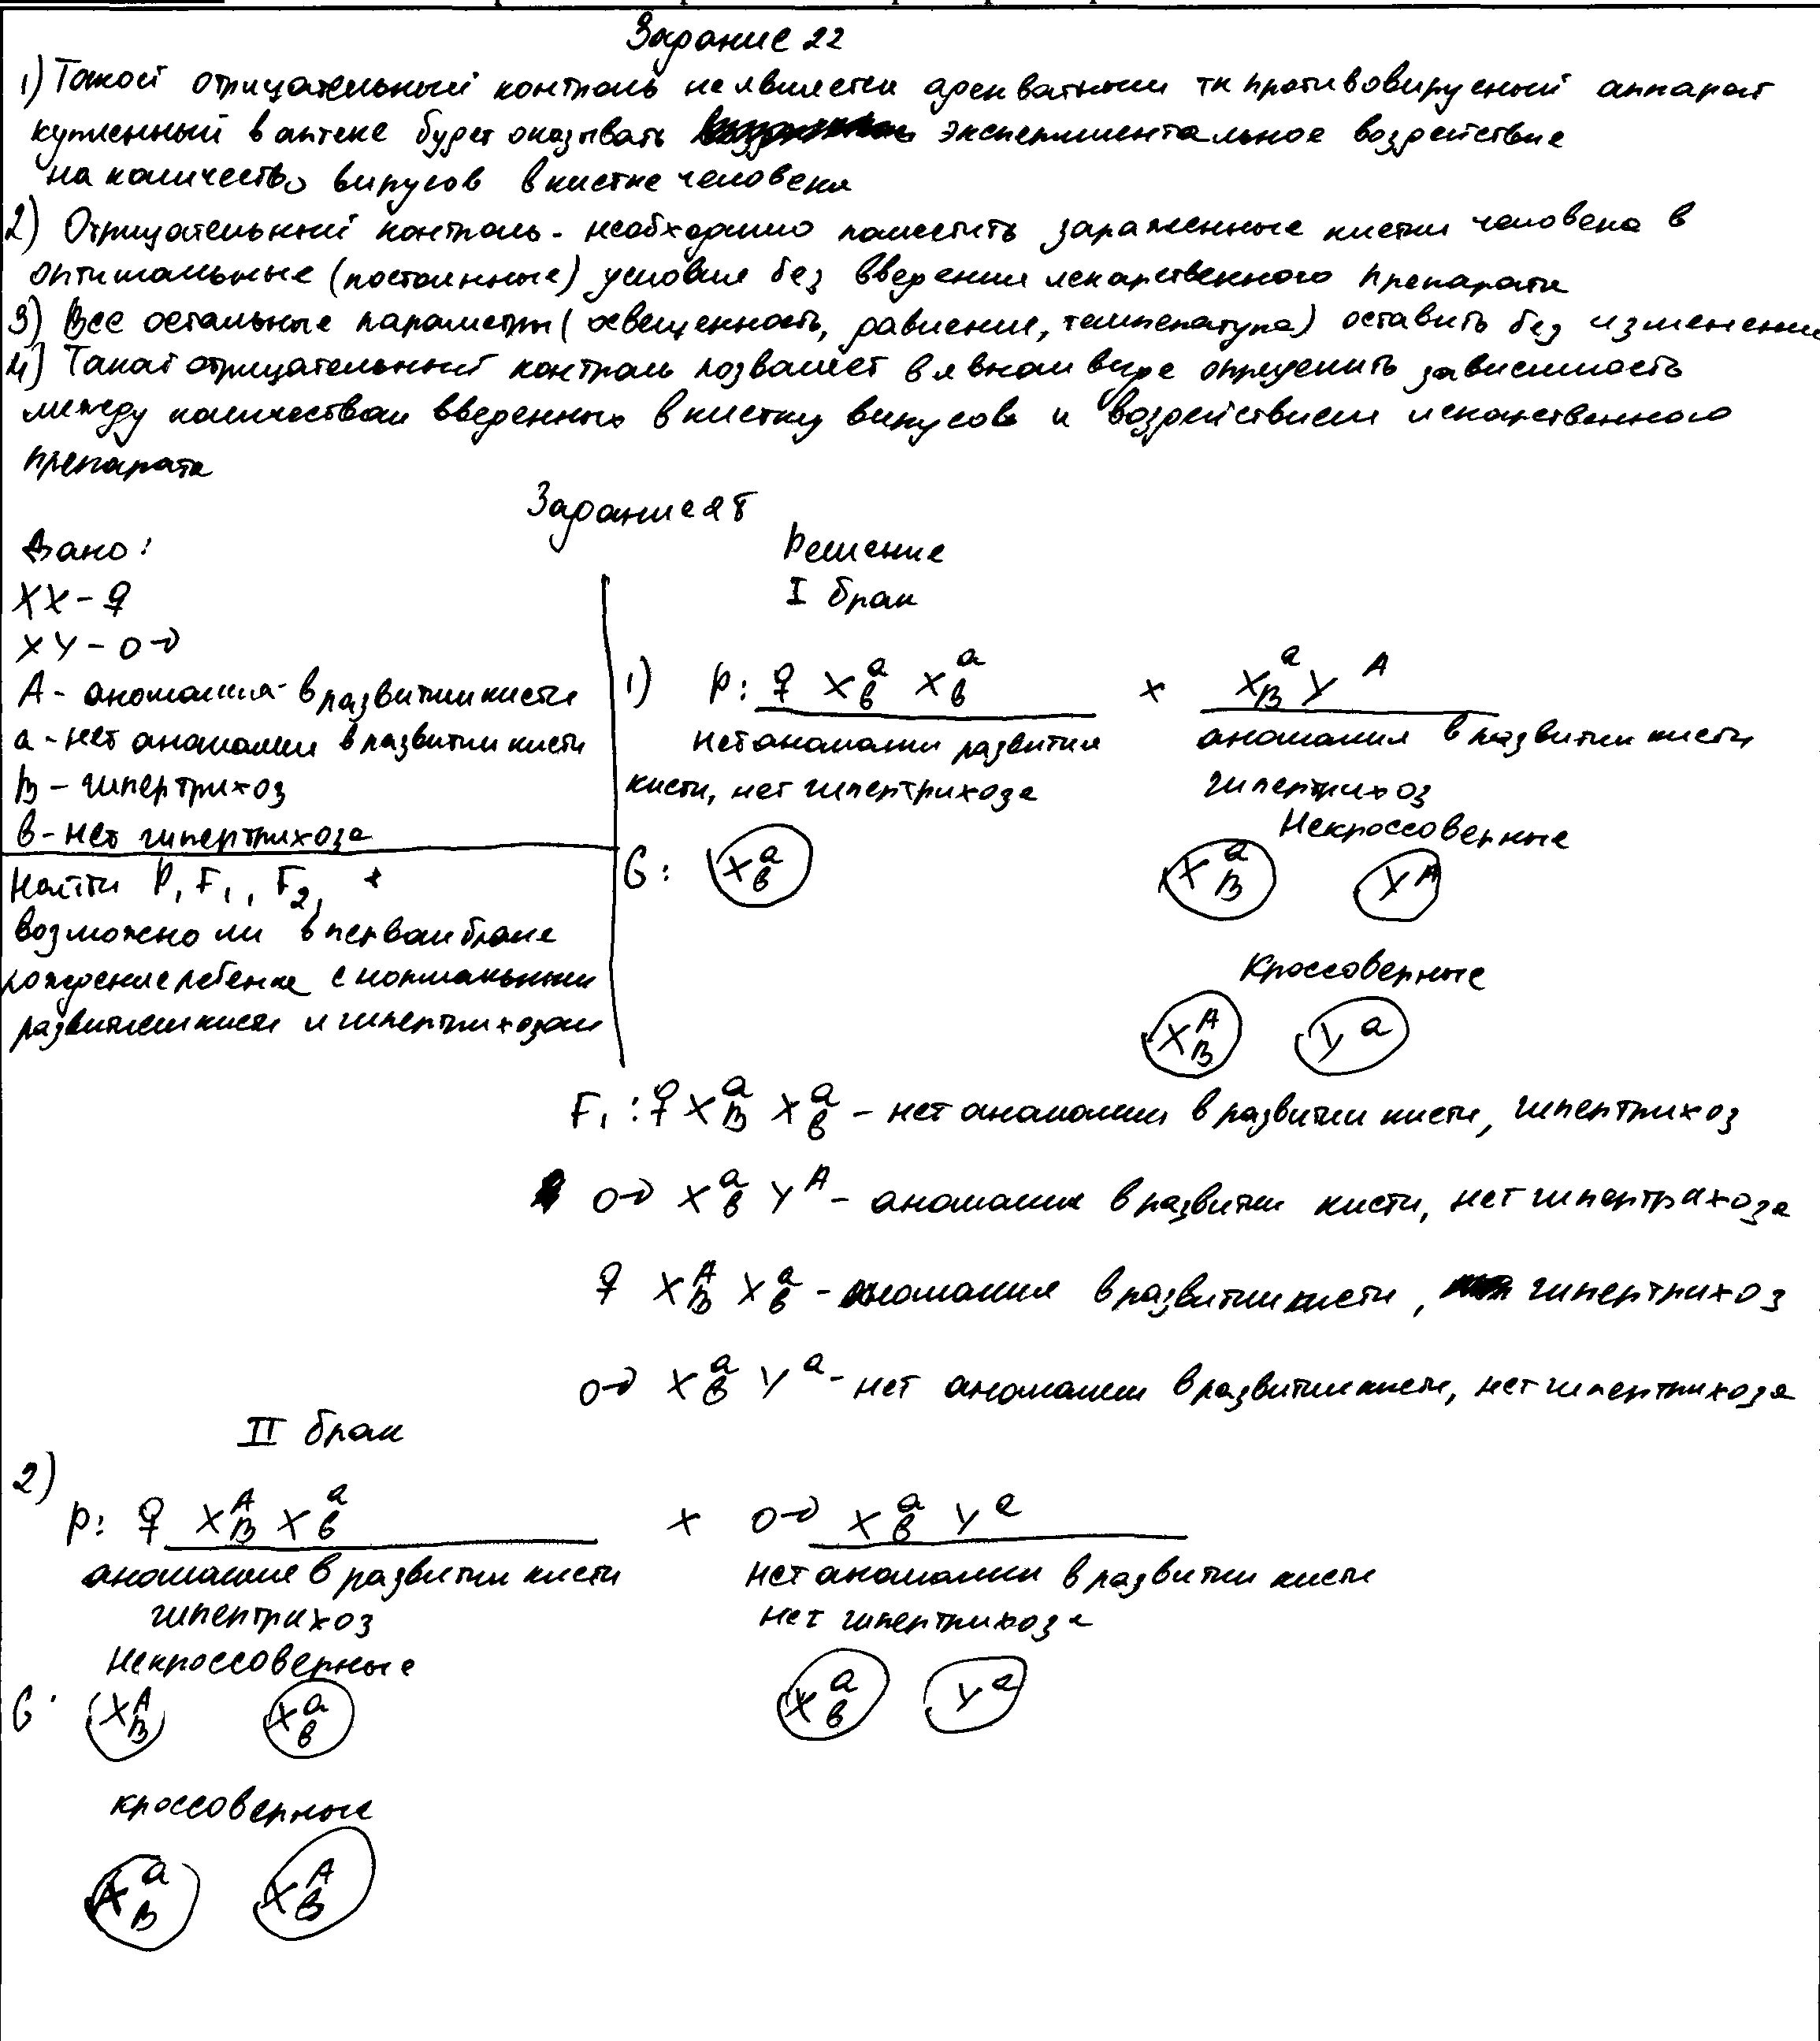 Задание 22
1) Такой отрицательный контроль не является адекватным тк противовирусный аппарат
купленный в аптеке будет оказывать экспериментальное воздействие
на количество вирусов в клетке человека
2) Отрицательный контроль - необходимо поместить зараженные клетки человека в
оптимальные (постоянные) условия без введения лекарственного препарата
3) Все остальные параметры (освещенность, давление, температура) оставить без изменений
4) Такой отрицательный контроль позволяет в явном виде определить зависимость
между количеством введенных в клетку вирусов и воздействием лекарственного
препарата
Задание 28
Дано:
XX - ♀
XY - ♂
A - аномалия в развитии кисти
a - нет аномалии в развитии кисти
B - гипертрихоз
b - нет гипертрихоза
Найти P, F₁, F₂,
возможно ли в первом браке
рождение ребенка с нормальным
развитием кисти и гипертрихозом
Решение
I брак
1) P: ♀ Xᵃb Xᵃb x XᵃB Yᴬ
нет аномалии развития аномалия в развитии кисти
кисти, нет гипертрихоза гипертрихоз
Некроссоверные
G: Xᵃb XᵃB Yᴬ
Кроссоверные
XᴬB Yᵃ
F₁: ♀ XᵃB Xᵃb - нет аномалии в развитии кисти, гипертрихоз
♂ Xᵃb Yᴬ - аномалия в развитии кисти, нет гипертрихоза
♀ XᴬB Xᵃb - аномалия в развитии кисти, гипертрихоз
♂ Xᵃb Yᵃ - нет аномалии в развитии кисти, нет гипертрихоза
II брак
2)
P: ♀ XᴬB Xᵃb x ♂ Xᵃb Yᵃ
аномалия в развитии кисти нет аномалии в развитии кисти
гипертрихоз нет гипертрихоза
Некроссоверные
G: XᴬB Xᵃb Xᵃb Yᵃ
кроссоверные
XᵃB Xᴬb